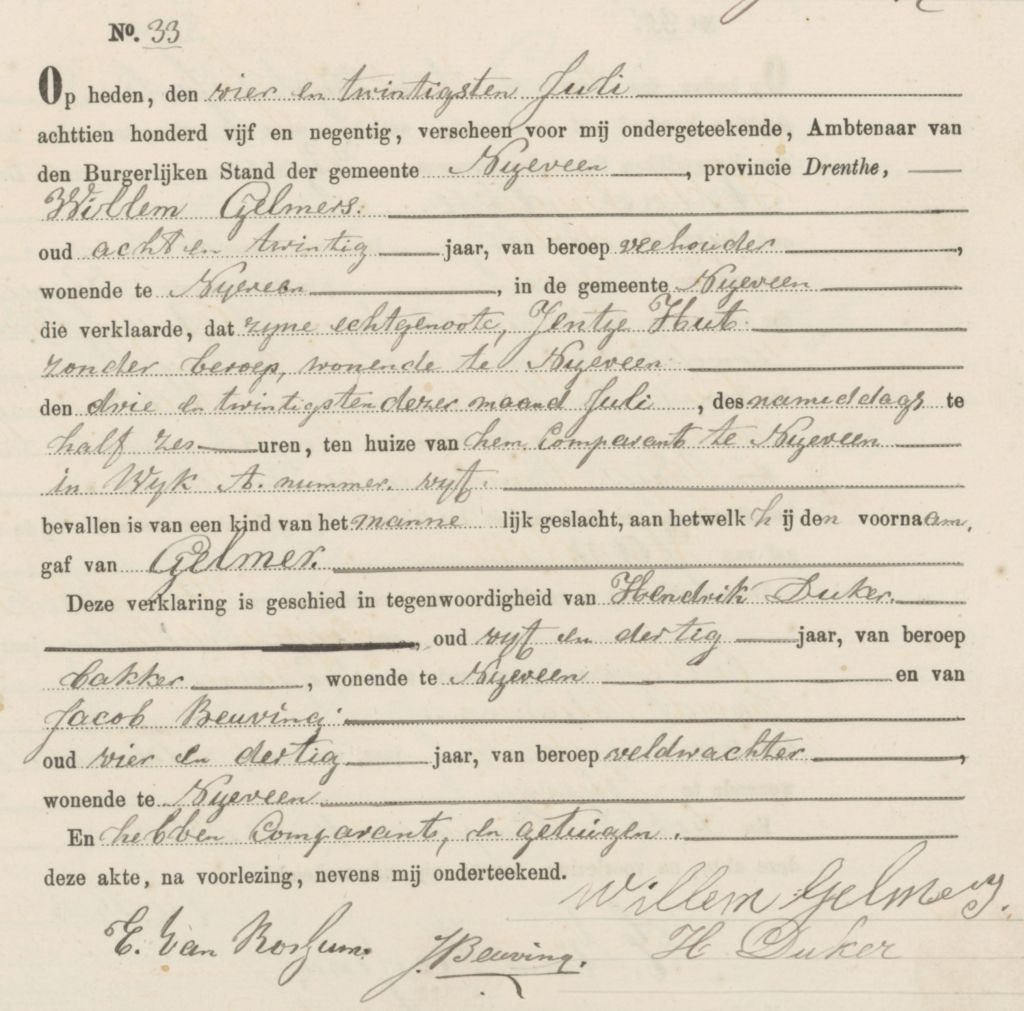 No. 33
Op heden, den vier en twintigsten Juli
achttien honderd vijf en negentig, verscheen voor mij ondergeteekende, Ambtenaar van
den Burgerlijken Stand der gemeente Nijeveen, provincie Drenthe,
Willem Gelmers.
oud acht en twintig jaar, van beroep veehouder,
wonende te Nijeveen, in de gemeente Nijeveen
die verklaarde, dat zijne echtgenoote, Jentje Hut
zonder beroep, wonende te Nijeveen
den drie en twintigsten dezer maand Juli, des nameddags te
half zes uren, ten huize van hem Comparant te Nijeveen
in Wijk A. nummer. vijf.
bevallen is van een kind van het manne lijk geslacht, aan hetwelk h ij den voornaam,
gaf van Gelmer.
Deze verklaring is geschied in tegenwoordigheid van Hendrik Duker.
, oud vijf en dertig jaar, van beroep
bakker, wonende te Nijeveen en van
Jacob Beuving
oud vier en dertig jaar, van beroep veldwachter,
wonende te Nijeveen
En hebben Comparant, en getuigen.
deze akte, na voorlezing, nevens mij onderteekend.
Willem Gelmers.
E. Van Rossum. J. Beuving. H Duker